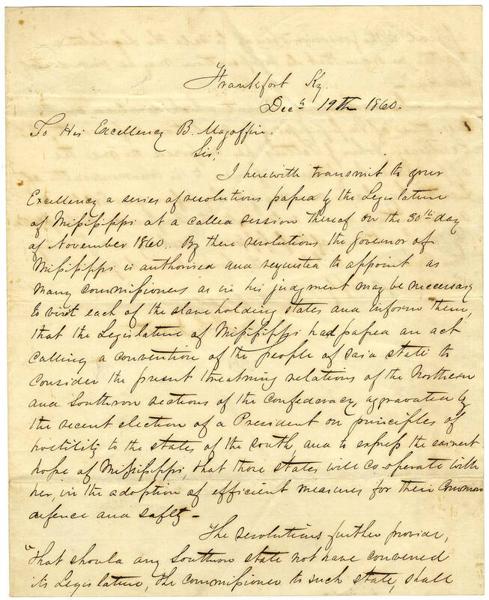 Frankfort Ky.
Decr 19th 1860.
To His Excellency B. Magoffin.
Sir;
I herewith transmit to your
Excellency a series of resolutions passed by the Legislature
of Mississippi at a called session thereof on the 30th day
of November 1860. By these resolutions the Governor of
Mississippi is authorised and requested to appoint as
many commissioners as in his judgment may be necessary
to visit each of the slaveholding states and inform them,
that the Legislature of Mississippi had passed an act
calling a convention of the people of said state to
consider the present threatning relations of the Northern
and Southron sections of the Confederacy, agravated by
the recent election of a President on principles of
hostility to the states of the south, and to express the earnest
hope of Mississippi, that those states will co-operate with
her, in the adoption of efficient measures for their common
defence and safety -
The resolutions further provide,
"That should any Southern state not have convened
its Legislature, the commissioner to such state, shall